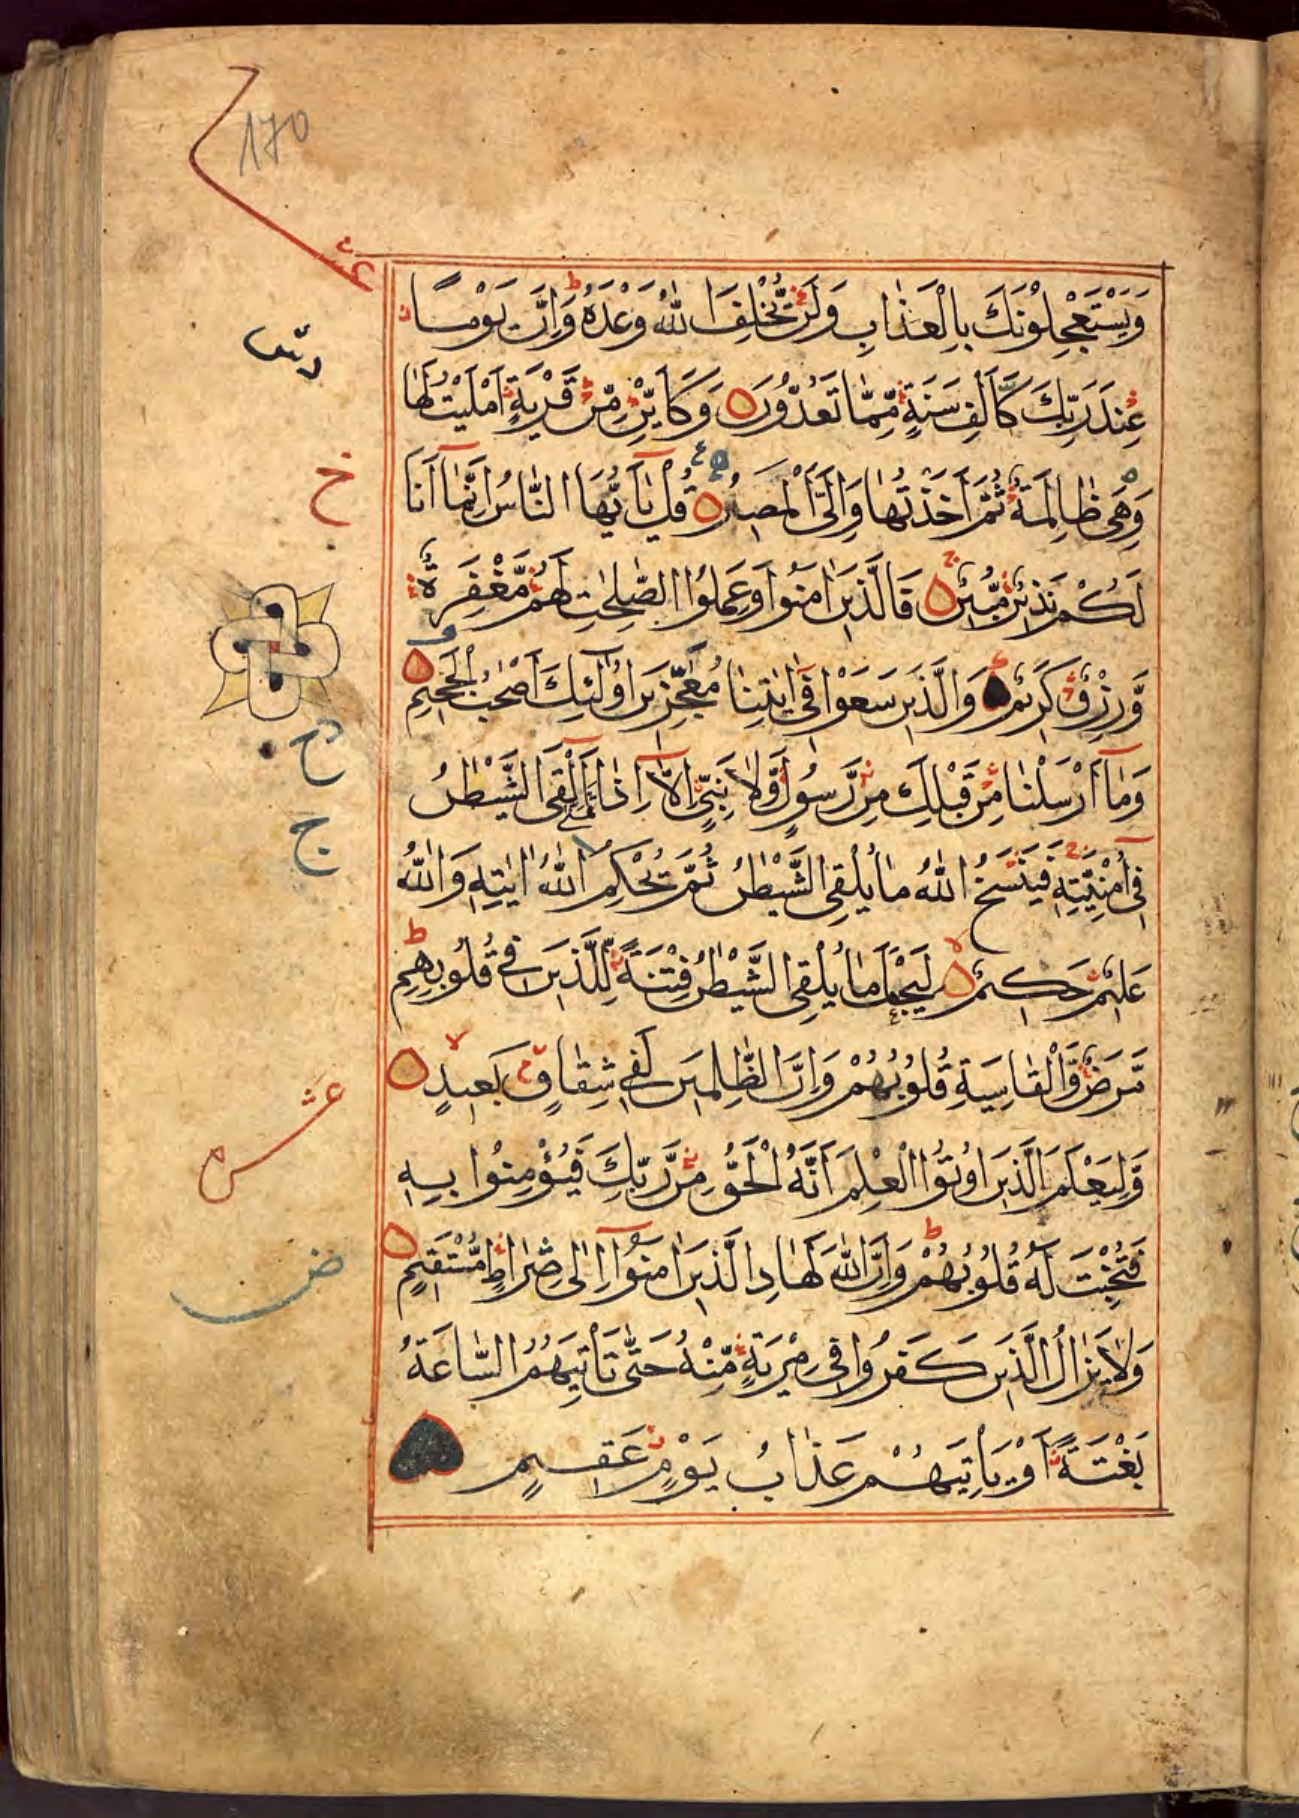 170
عشر
وَيَسْتَعْجِلُونَكَ بِالْعَذَابِ وَلَنْ يُّخْلِفَ اللّٰهُ وَعْدَهُ ط وَاِنَّ يَوْمًا
عِنْدَ رَبِّكَ كَاَلْفِ سَنَةٍ مِّمَّا تَعُدُّوْنَ وَكَاَيِّنْ مِّنْ قَرْيَةٍ اَمْلَيْتُ لَهَا
وَهِيَ ظَالِمَةٌ ثُمَّ اَخَذْتُهَا وَاِلَيَّ الْمَصِيْرُ قُلْ يٰاَيُّهَا النَّاسُ اِنَّمَا اَنَا
خ
لَكُمْ نَذِيْرٌ مُّبِيْنٌ فَالَّذِيْنَ اٰمَنُوْا وَعَمِلُوا الصّٰلِحٰتِ لَهُمْ مَّغْفِرَةٌ
وَّرِزْقٌ كَرِيْمٌ وَالَّذِيْنَ سَعَوْا فِيْ اٰيٰتِنَا مُعٰجِزِيْنَ اُولٰئِكَ اَصْحٰبُ الْجَحِيْمِ
وَمَا اَرْسَلْنَا مِنْ قَبْلِكَ مِنْ رَّسُوْلٍ وَّلَا نَبِيٍّ اِلَّا اِذَا تَمَنّٰى اَلْقَى الشَّيْطٰنُ
ج
فِيْ اُمْنِيَّتِهِ فَيَنْسَخُ اللّٰهُ مَا يُلْقِي الشَّيْطٰنُ ثُمَّ يُحْكِمُ اللّٰهُ اٰيٰتِهِ وَاللّٰهُ
عَلِيْمٌ حَكِيْمٌ لِيَجْعَلَ مَا يُلْقِي الشَّيْطٰنُ فِتْنَةً لِّلَّذِيْنَ فِيْ قُلُوْبِهِمْ ط
مَّرَضٌ وَّالْقَاسِيَةِ قُلُوْبُهُمْ وَاِنَّ الظّٰلِمِيْنَ لَفِيْ شِقَاقٍ بَعِيْدٍ
وَّلِيَعْلَمَ الَّذِيْنَ اُوْتُوا الْعِلْمَ اَنَّهُ الْحَقُّ مِنْ رَّبِّكَ فَيُؤْمِنُوْا بِهِ
فَتُخْبِتَ لَهُ قُلُوْبُهُمْ ط وَاِنَّ اللّٰهَ لَهَادِ الَّذِيْنَ اٰمَنُوْا اِلٰى صِرَاطٍ مُّسْتَقِيْمٍ
وَلَا يَزَالُ الَّذِيْنَ كَفَرُوْا فِيْ مِرْيَةٍ مِّنْهُ حَتّٰى تَأْتِيَهُمُ السَّاعَةُ
بَغْتَةً اَوْ يَأْتِيَهُمْ عَذَابُ يَوْمٍ عَقِيْمٍ